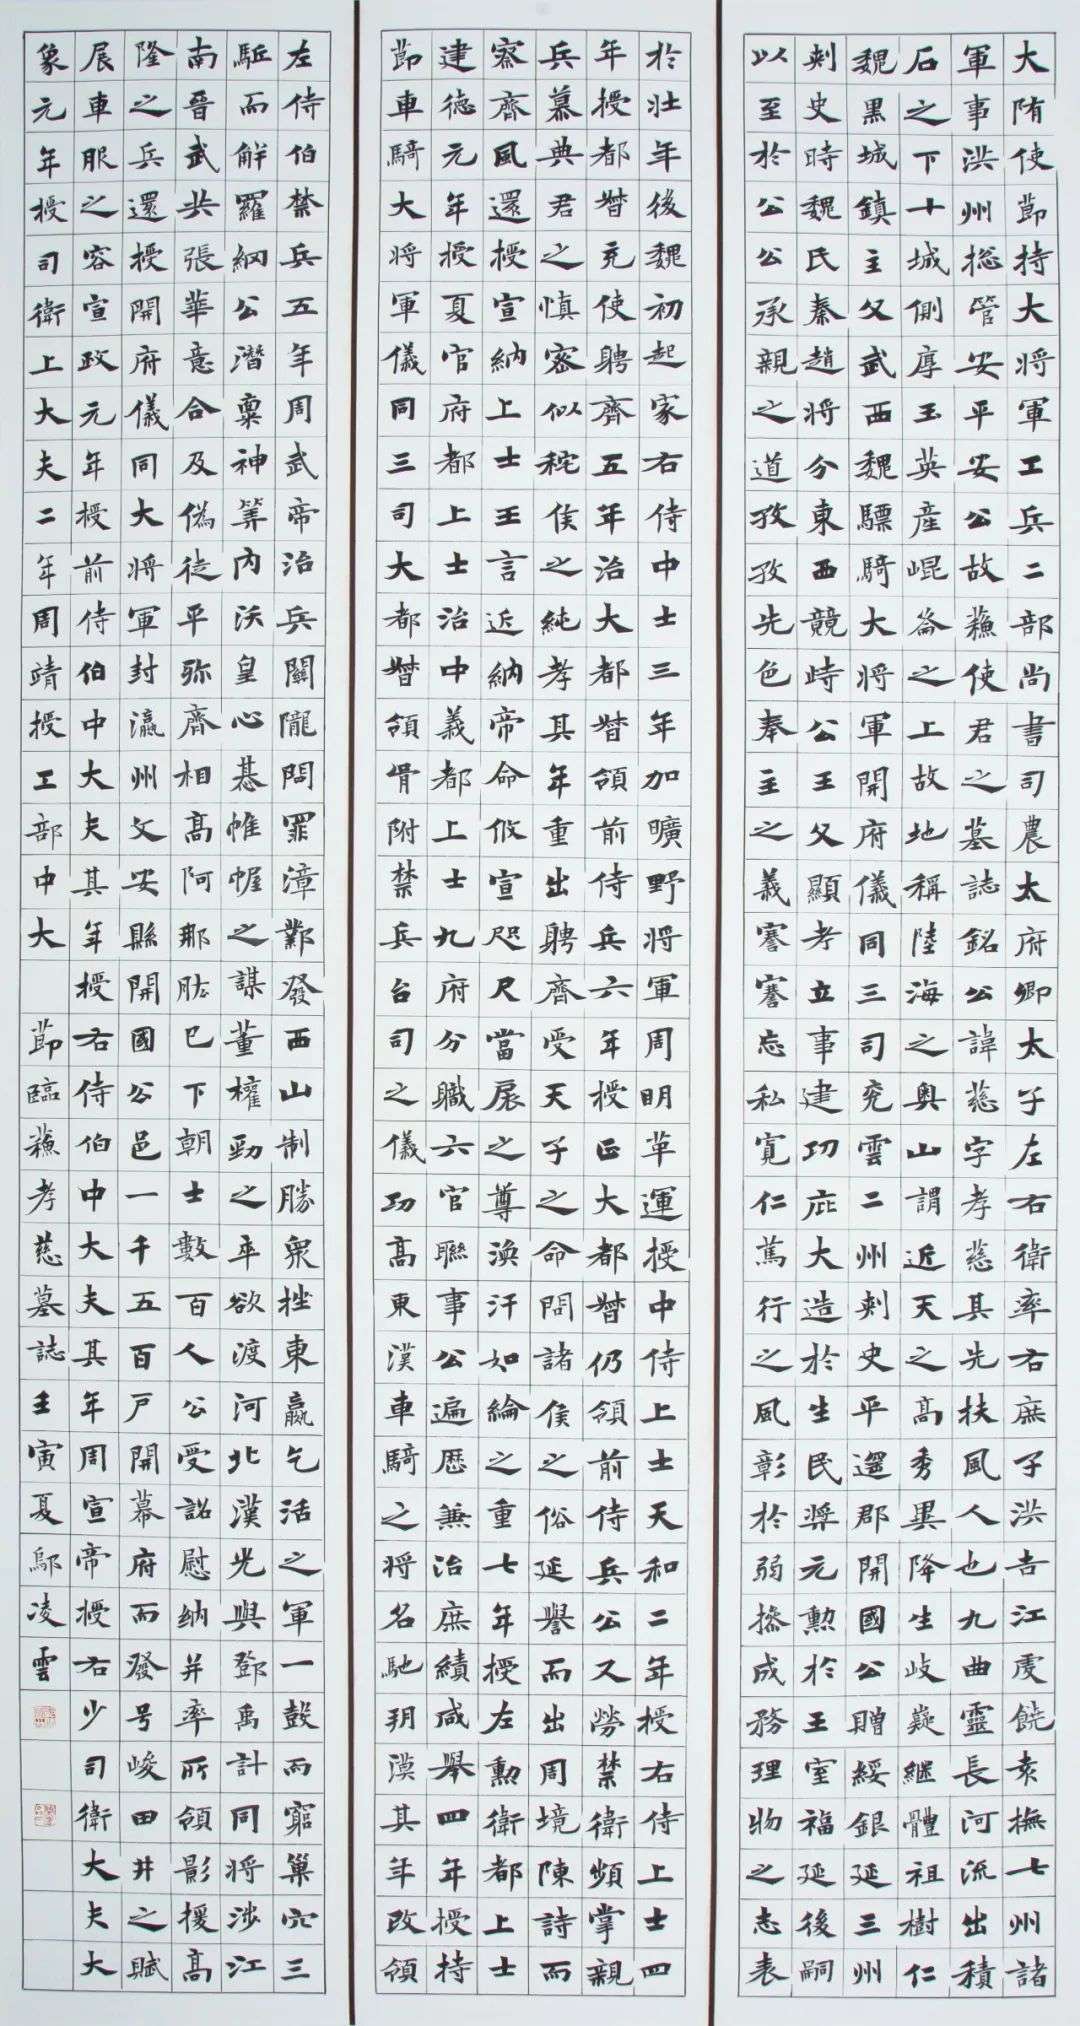 大陏使節持大將軍工兵二部尚書司農太府卿太子左右衛率右庶子洪吉江虔饒袁撫七州諸
軍事洪州捴管安平安公故蘓使君之墓誌銘公諱慈字孝慈其先扶風人也九曲靈長河流出積
石之下十城側厚玉英產崐崙之上故地稱陸海之奧山謂近天之高秀異降生岐嶷継體祖樹仁
魏黑城鎮主父武西魏驃騎大將軍開府儀同三司兖雲二州刺史平遥郡開國公贈綏銀延三州
刺史時魏氏秦趙將分東西競峙公王父顯考立事建功庇大造於生民奨元勲於王室福延後嗣
以至於公公承親之道孜孜先色奉主之義謇謇忘私寬仁篤行之風彰於弱摻成務理物之志表
於壮年後魏初起家右侍中士三年加曠野將軍周明革運授中侍上士天和二年授右侍上士四
年授都督充使聘齊五年治大都督領前侍兵六年授正大都督仍領前侍兵公又勞禁衛頻掌親
兵慕典君之慎密似秺侯之純孝其年重出聘齊受天子之命問諸侯之俗延譽而出周境陳詩而
察齊風還授宣納上士王言近納帝命攸宣咫尺當扆之尊渙汗如綸之重七年授左勲衛都上士
建德元年授夏官府都上士治中義都上士九府分職六官聯事公遍歷兼治庶績咸舉四年授持
節車騎大將軍儀同三司大都督領胥附禁兵台司之儀功高東漢車騎之將名馳朔漠其年改領
左侍伯禁兵五年周武帝治兵關隴問罪漳鄴發西山制勝衆挫東嬴乞活之軍一鼓而窮巢穴三
駈而解羅網公潛稟神筭內沃皇心惎帷幄之謀董權勁之卒欲渡河北漢光與鄧禹計同將涉江
南晉武共張華意合及偽徒平弥齊相高阿那肱已下朝士數百人公受詔慰納并率所領影援高
隆之兵還授開府儀同大將軍封瀛州文安縣開國公邑一千五百戸開幕府而發号峻田井之賦
展車服之容宣政元年授前侍伯中大夫其年授右侍伯中大夫其年周宣帝授右少司衛大夫大
象元年授司衛上大夫二年周靖授工部中大 節臨蘓孝慈墓誌壬寅夏鄔凌雲